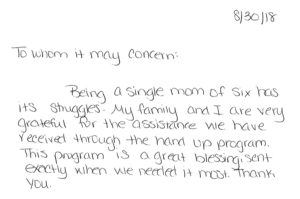 8/30/18
To whom it may concern:
Being a single mom of six has
its struggles. My family and I are very
grateful for the assistance we have
received through the hand up program.
This program is a great blessing, sent
exactly when we needed it most. Thank
you.